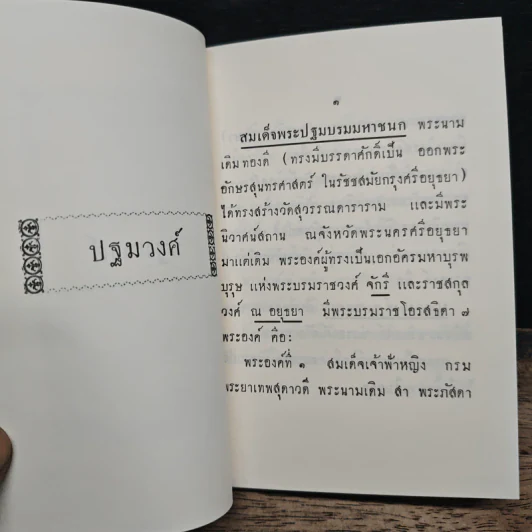 ปฐมวงศ์
๑
สมเด็จพระปฐมบรมมหาชนก พระนาม
เดิมทองดี (ทรงมีบรรดาศักดิ์เป็น ออกพระ
อักษรสุนทรศาสตร์ ในรัชชสมัยกรุงศรีอยุธยา)
ได้ทรงสร้างวัดสุวรรณดาราราม และมีพระ
นิวาศน์สถาน ณจังหวัดพระนครศรีอยุธยา
มาแต่เดิม พระองค์ผู้ทรงเป็นเอกอัครมหาบุรพ
บุรุษ แห่งพระบรมราชวงศ์ จักรี และราชสกุล
วงศ์ ณ อยุธยา มีพระบรมราชโอรสธิดา ๗
พระองค์ คือ:
พระองค์ที่ ๑ สมเด็จเจ้าฟ้าหญิง กรม
พระยาเทพสุดาวดี พระนามเดิม สา พระภัสดา